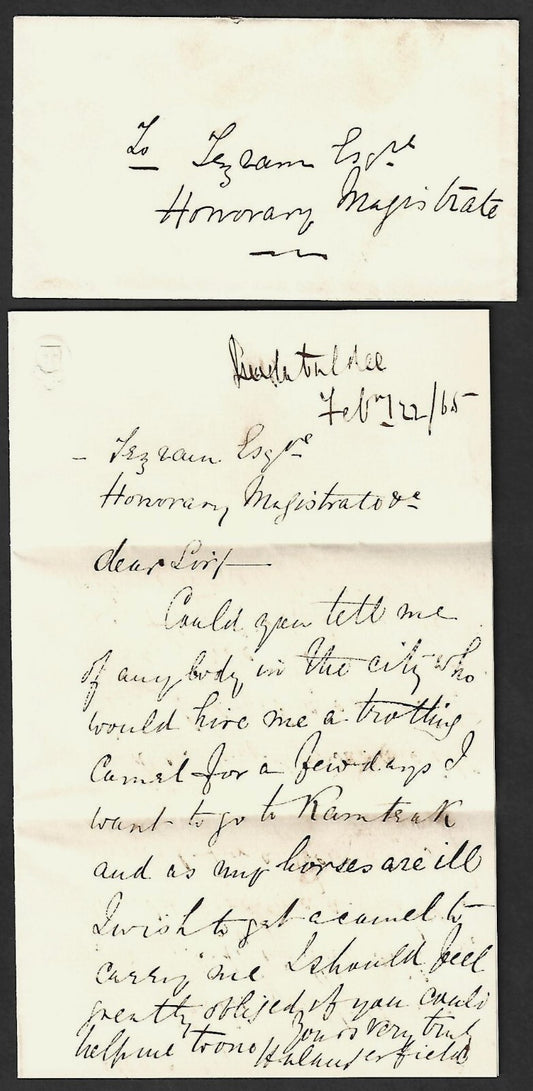 To Tezram Esqre
Honorary Magistrate
Feby 22/65
- Tezram Esqre
Honorary Magistrate &c
dear Sir/-
Could you tell me
of any body in the city who
would hire me a trotting
Camel for a few days I
want to go to Ramteak
and as my horses are ill
I wish to get a camel to
carry me I should feel
greatly obliged if you could
help me to one Yours very truly